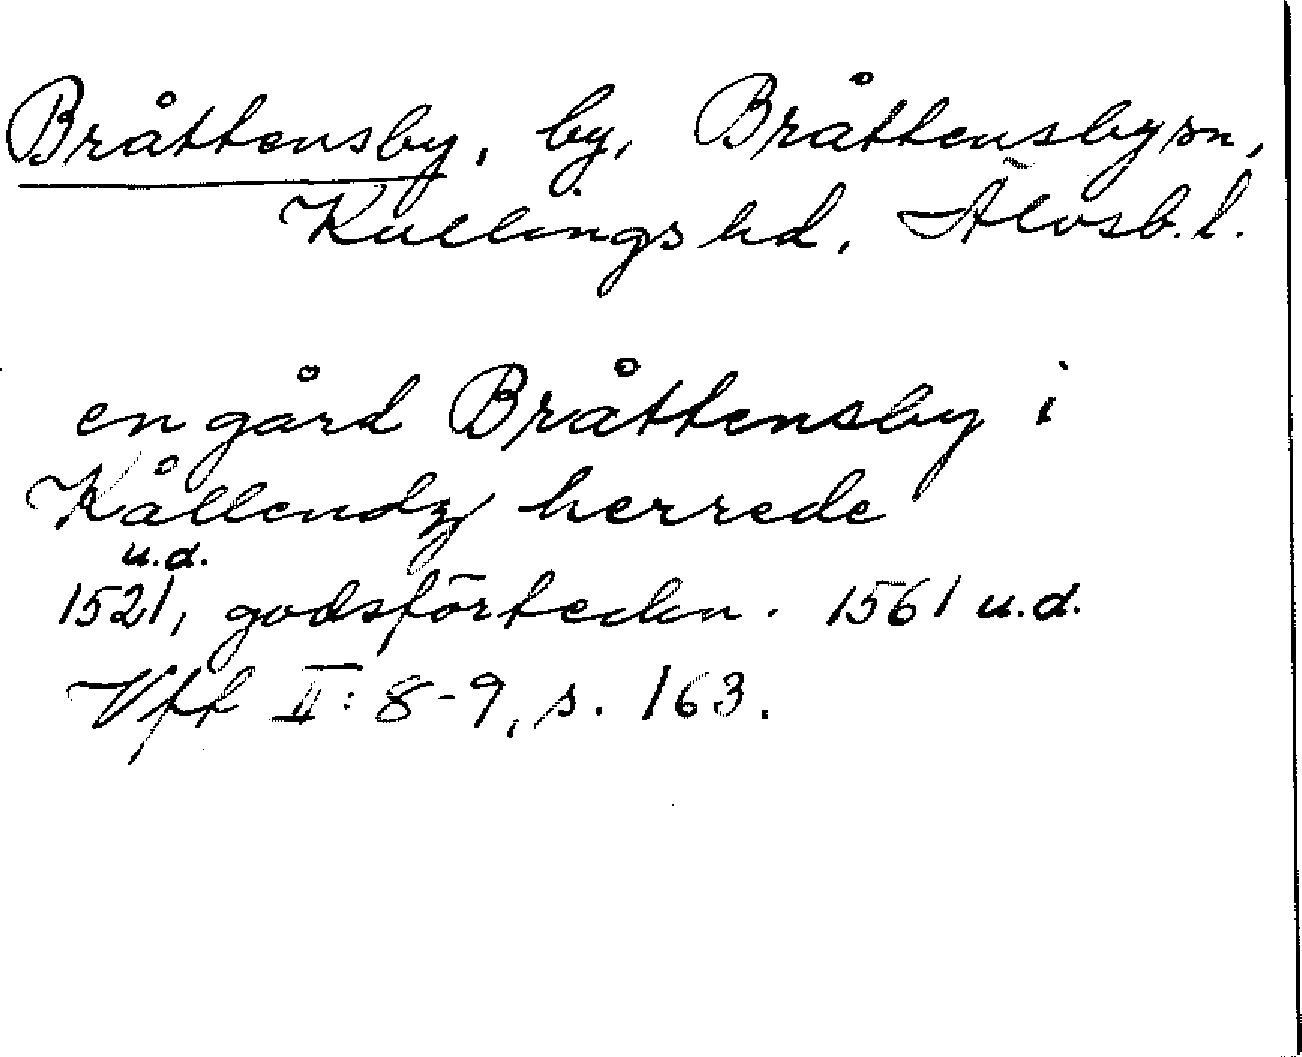 Bråttensby, by, Bråttensby sn,
Kullings hd, Älvsb. l.
en gård Bråttensby i
Kållendz herrede
u.d.
1521, godsförteckn. 1561 u.d.
Vff II: 8-9, s. 163.